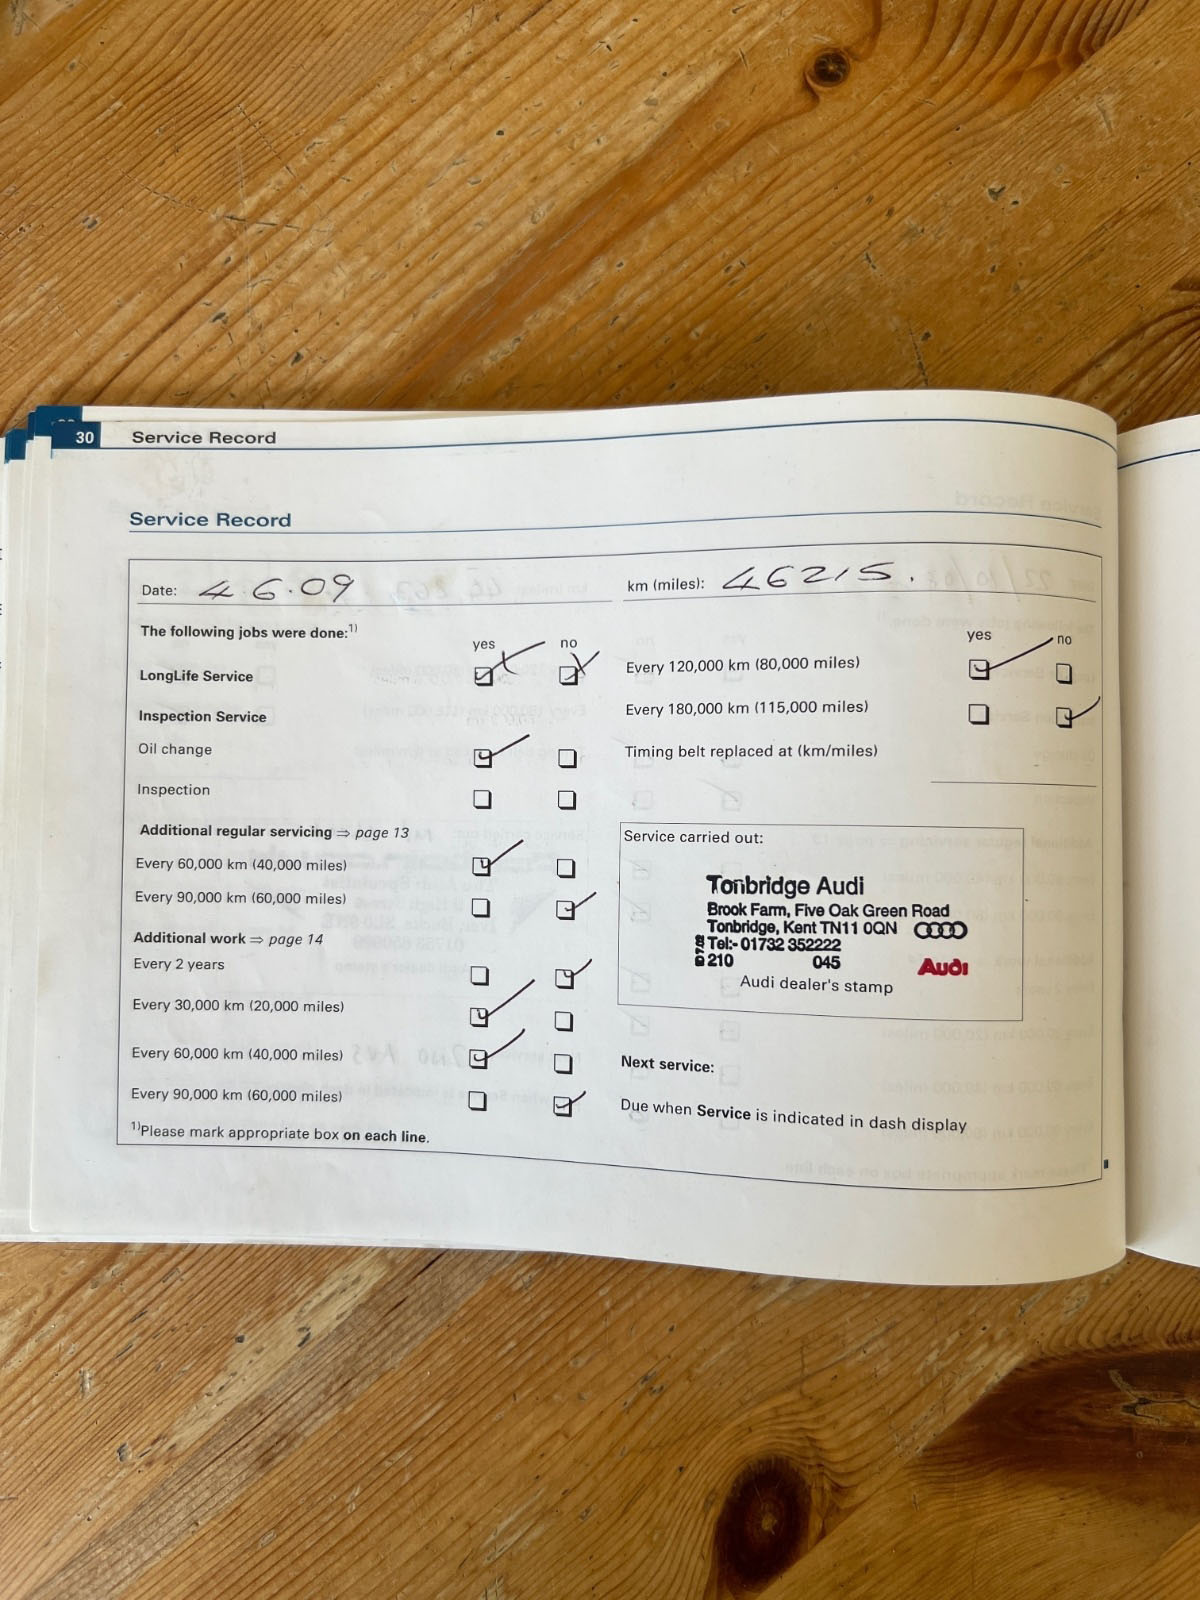 30 Service Record
Service Record
Date: 4.6.09
km (miles): 46215.
The following jobs were done:1)
yes no
LongLife Service
Inspection Service
Oil change
Inspection
Additional regular servicing ⇒ page 13
Every 60,000 km (40,000 miles)
Every 90,000 km (60,000 miles)
Additional work ⇒ page 14
Every 2 years
Every 30,000 km (20,000 miles)
Every 60,000 km (40,000 miles)
Every 90,000 km (60,000 miles)
1)Please mark appropriate box on each line.
yes no
Every 120,000 km (80,000 miles)
Every 180,000 km (115,000 miles)
Timing belt replaced at (km/miles)
Service carried out:
Tonbridge Audi
Brook Farm, Five Oak Green Road
Tonbridge, Kent TN11 0QN
Tel:- 01732 352222
210 045 Audi
Audi dealer's stamp
Next service:
Due when Service is indicated in dash display